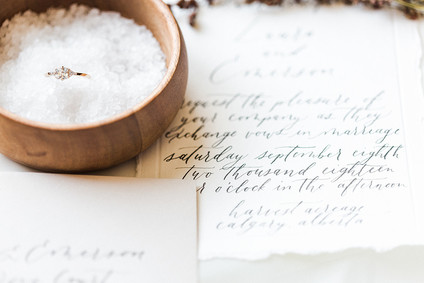 Laura
and
Emerson
request the pleasure of
your company as they
exchange vows in marriage
saturday september eighth
two thousand eighteen
o'clock in the afternoon
harvest acreage
calgary alberta
Emerson